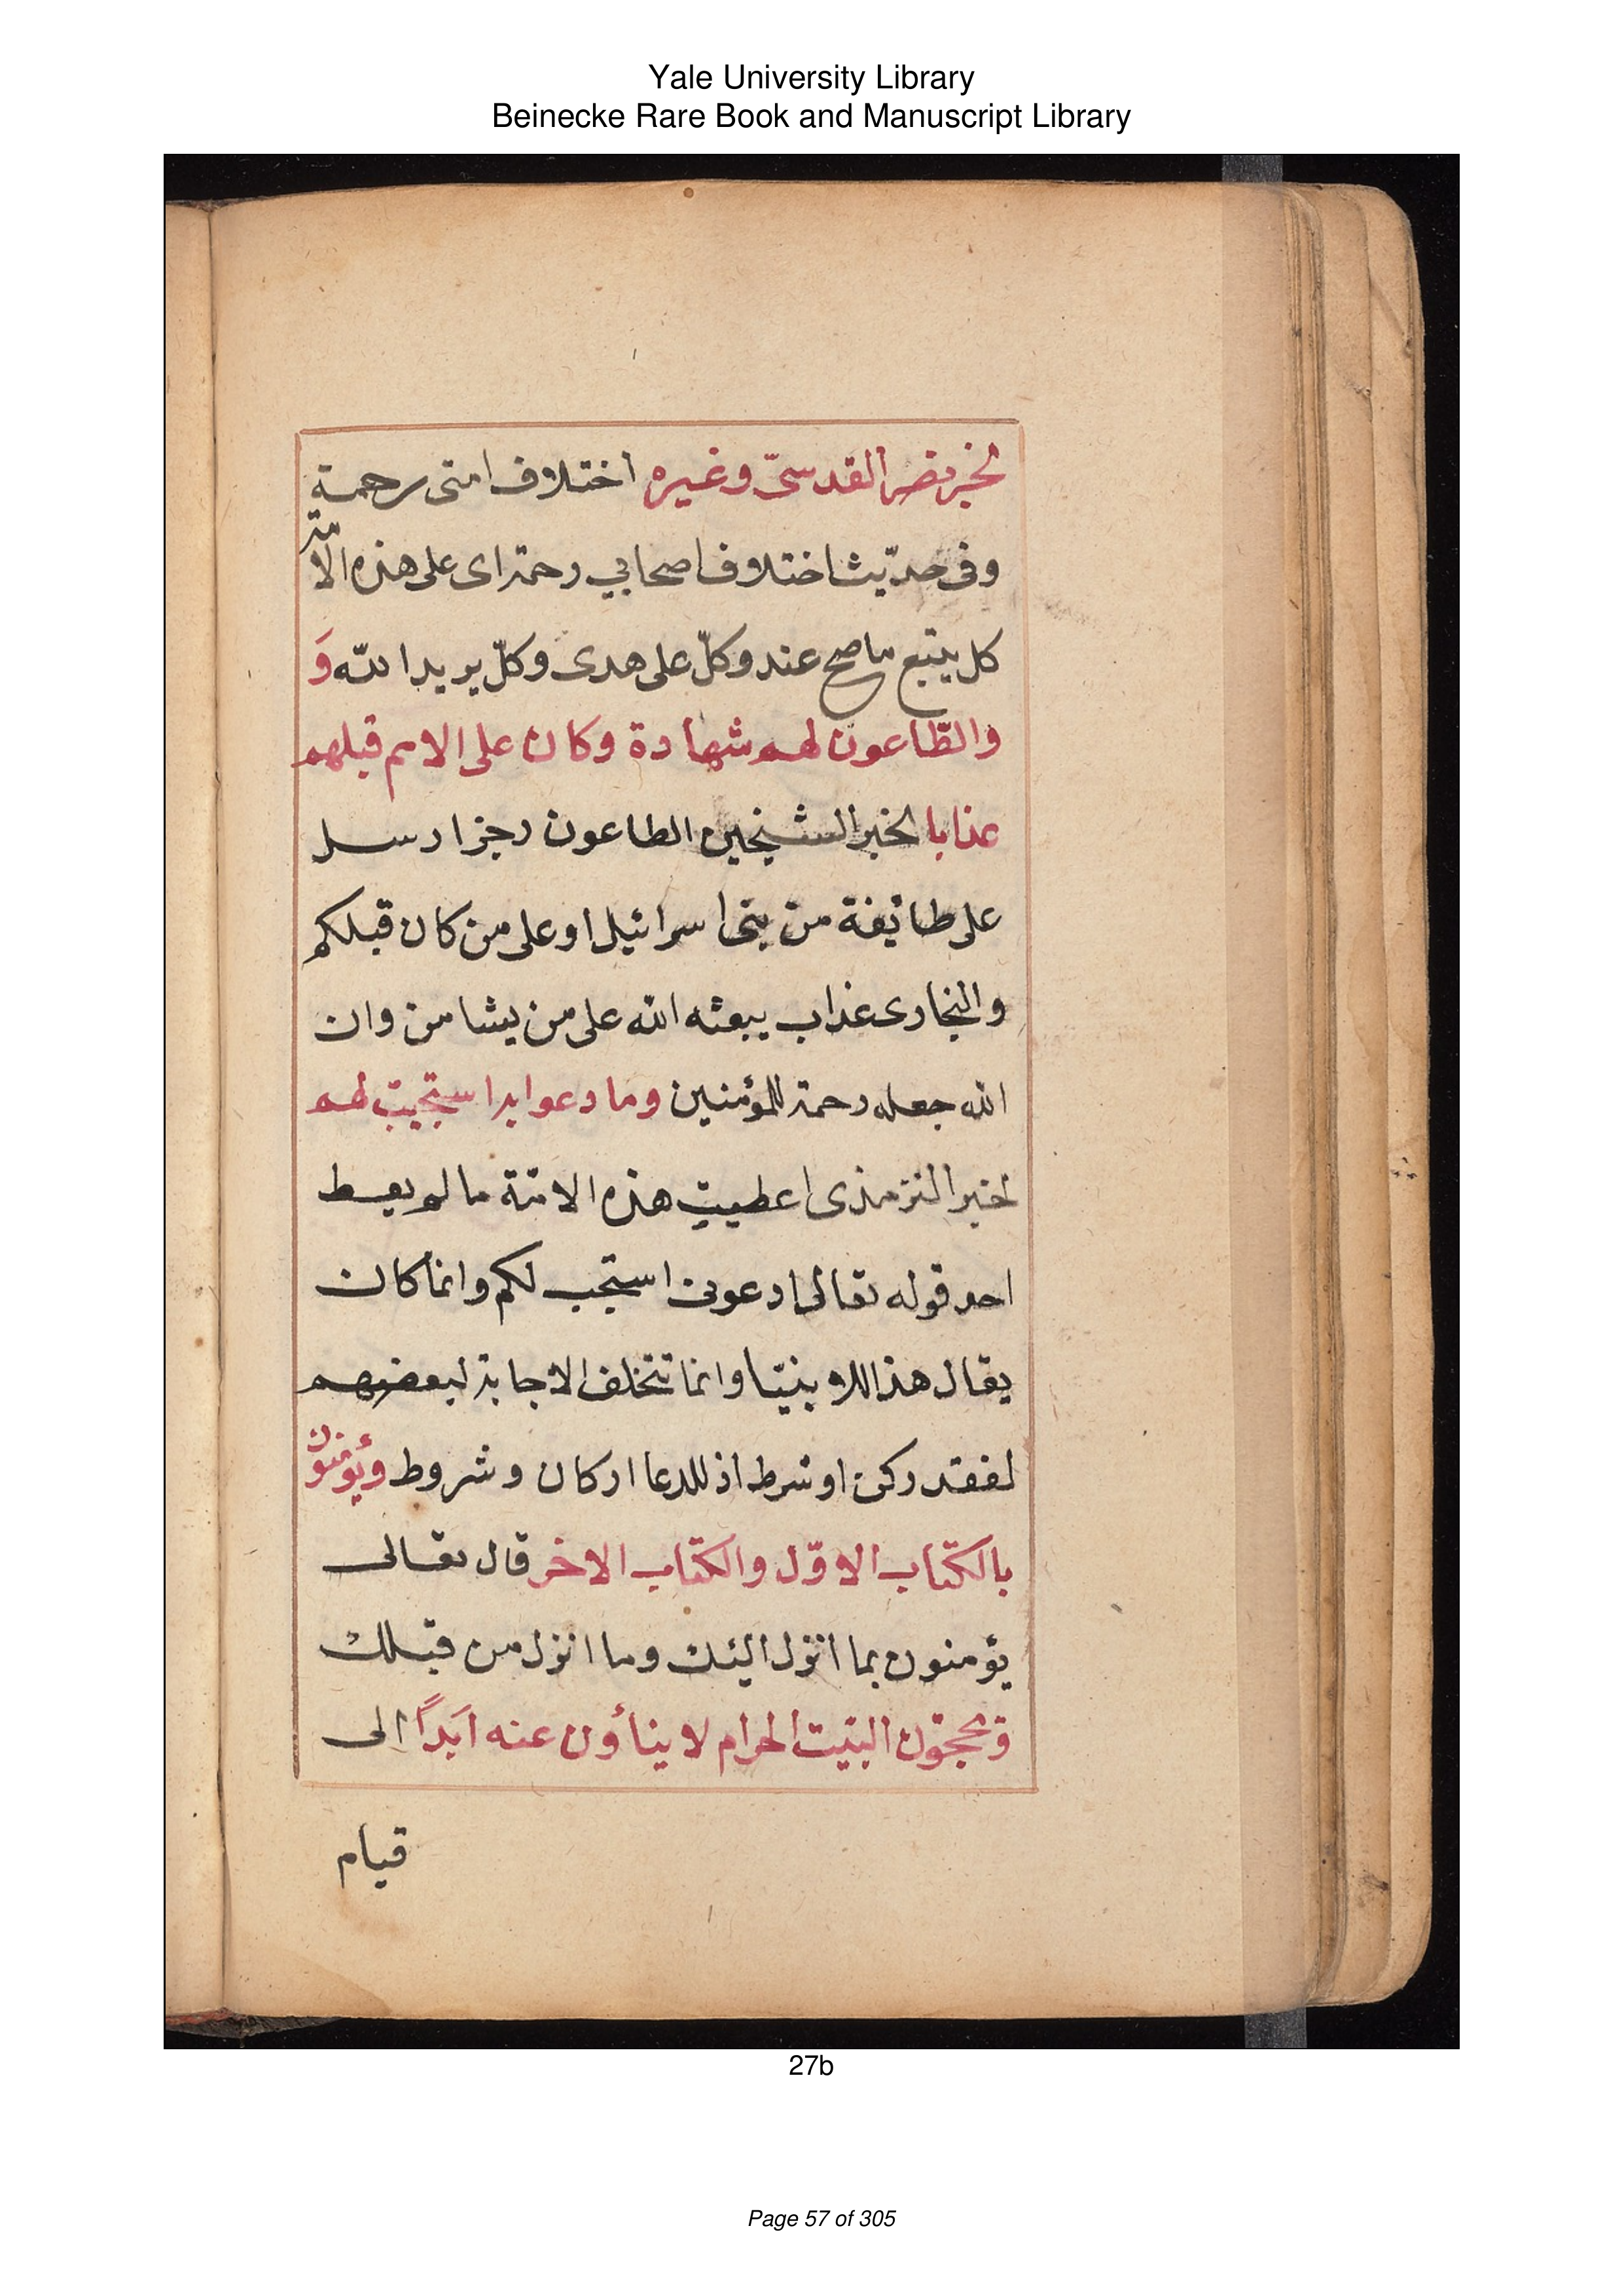 Yale University Library
Beinecke Rare Book and Manuscript Library
لخبر نصر القدسىّ وغيره اختلاف امتى رحمة
وفى حديث اختلاف اصحابي رحمة اى على هذه الامّة
كل يتبع ما صح عنده وكلّ على هدى وكلّ يريد الله وَ
والطّاعون لهم شهادة وكان على الامم قبلهم
عذابا لخبر الشيخين الطاعون رجز ارسل
على طائفة من بنى اسرائيل او على من كان قبلكم
والبخارى عذاب يبعثه الله على من يشا من وان
الله جعله رحمة للمؤمنين وما دعوا به استجيب لهم
لخبر الترمذى اعطيت هذه الامّة ما لم يعط
احد قوله تعالى ادعونى استجب لكم وانما كان
يقال هذا للانبيّا وانما تتخلف الاجابة لبعضهم
لفقد ركن او شرط اذ للدعا اركان وشروط ويؤمنون
بالكتاب الاوّل والكتاب الاخر قال تعالى
يؤمنون بما انزل اليك وما انزل من قبلك
ويحجّون البيت الحرام لا ينأون عنه اَبداً الى
قيام
27b
Page 57 of 305